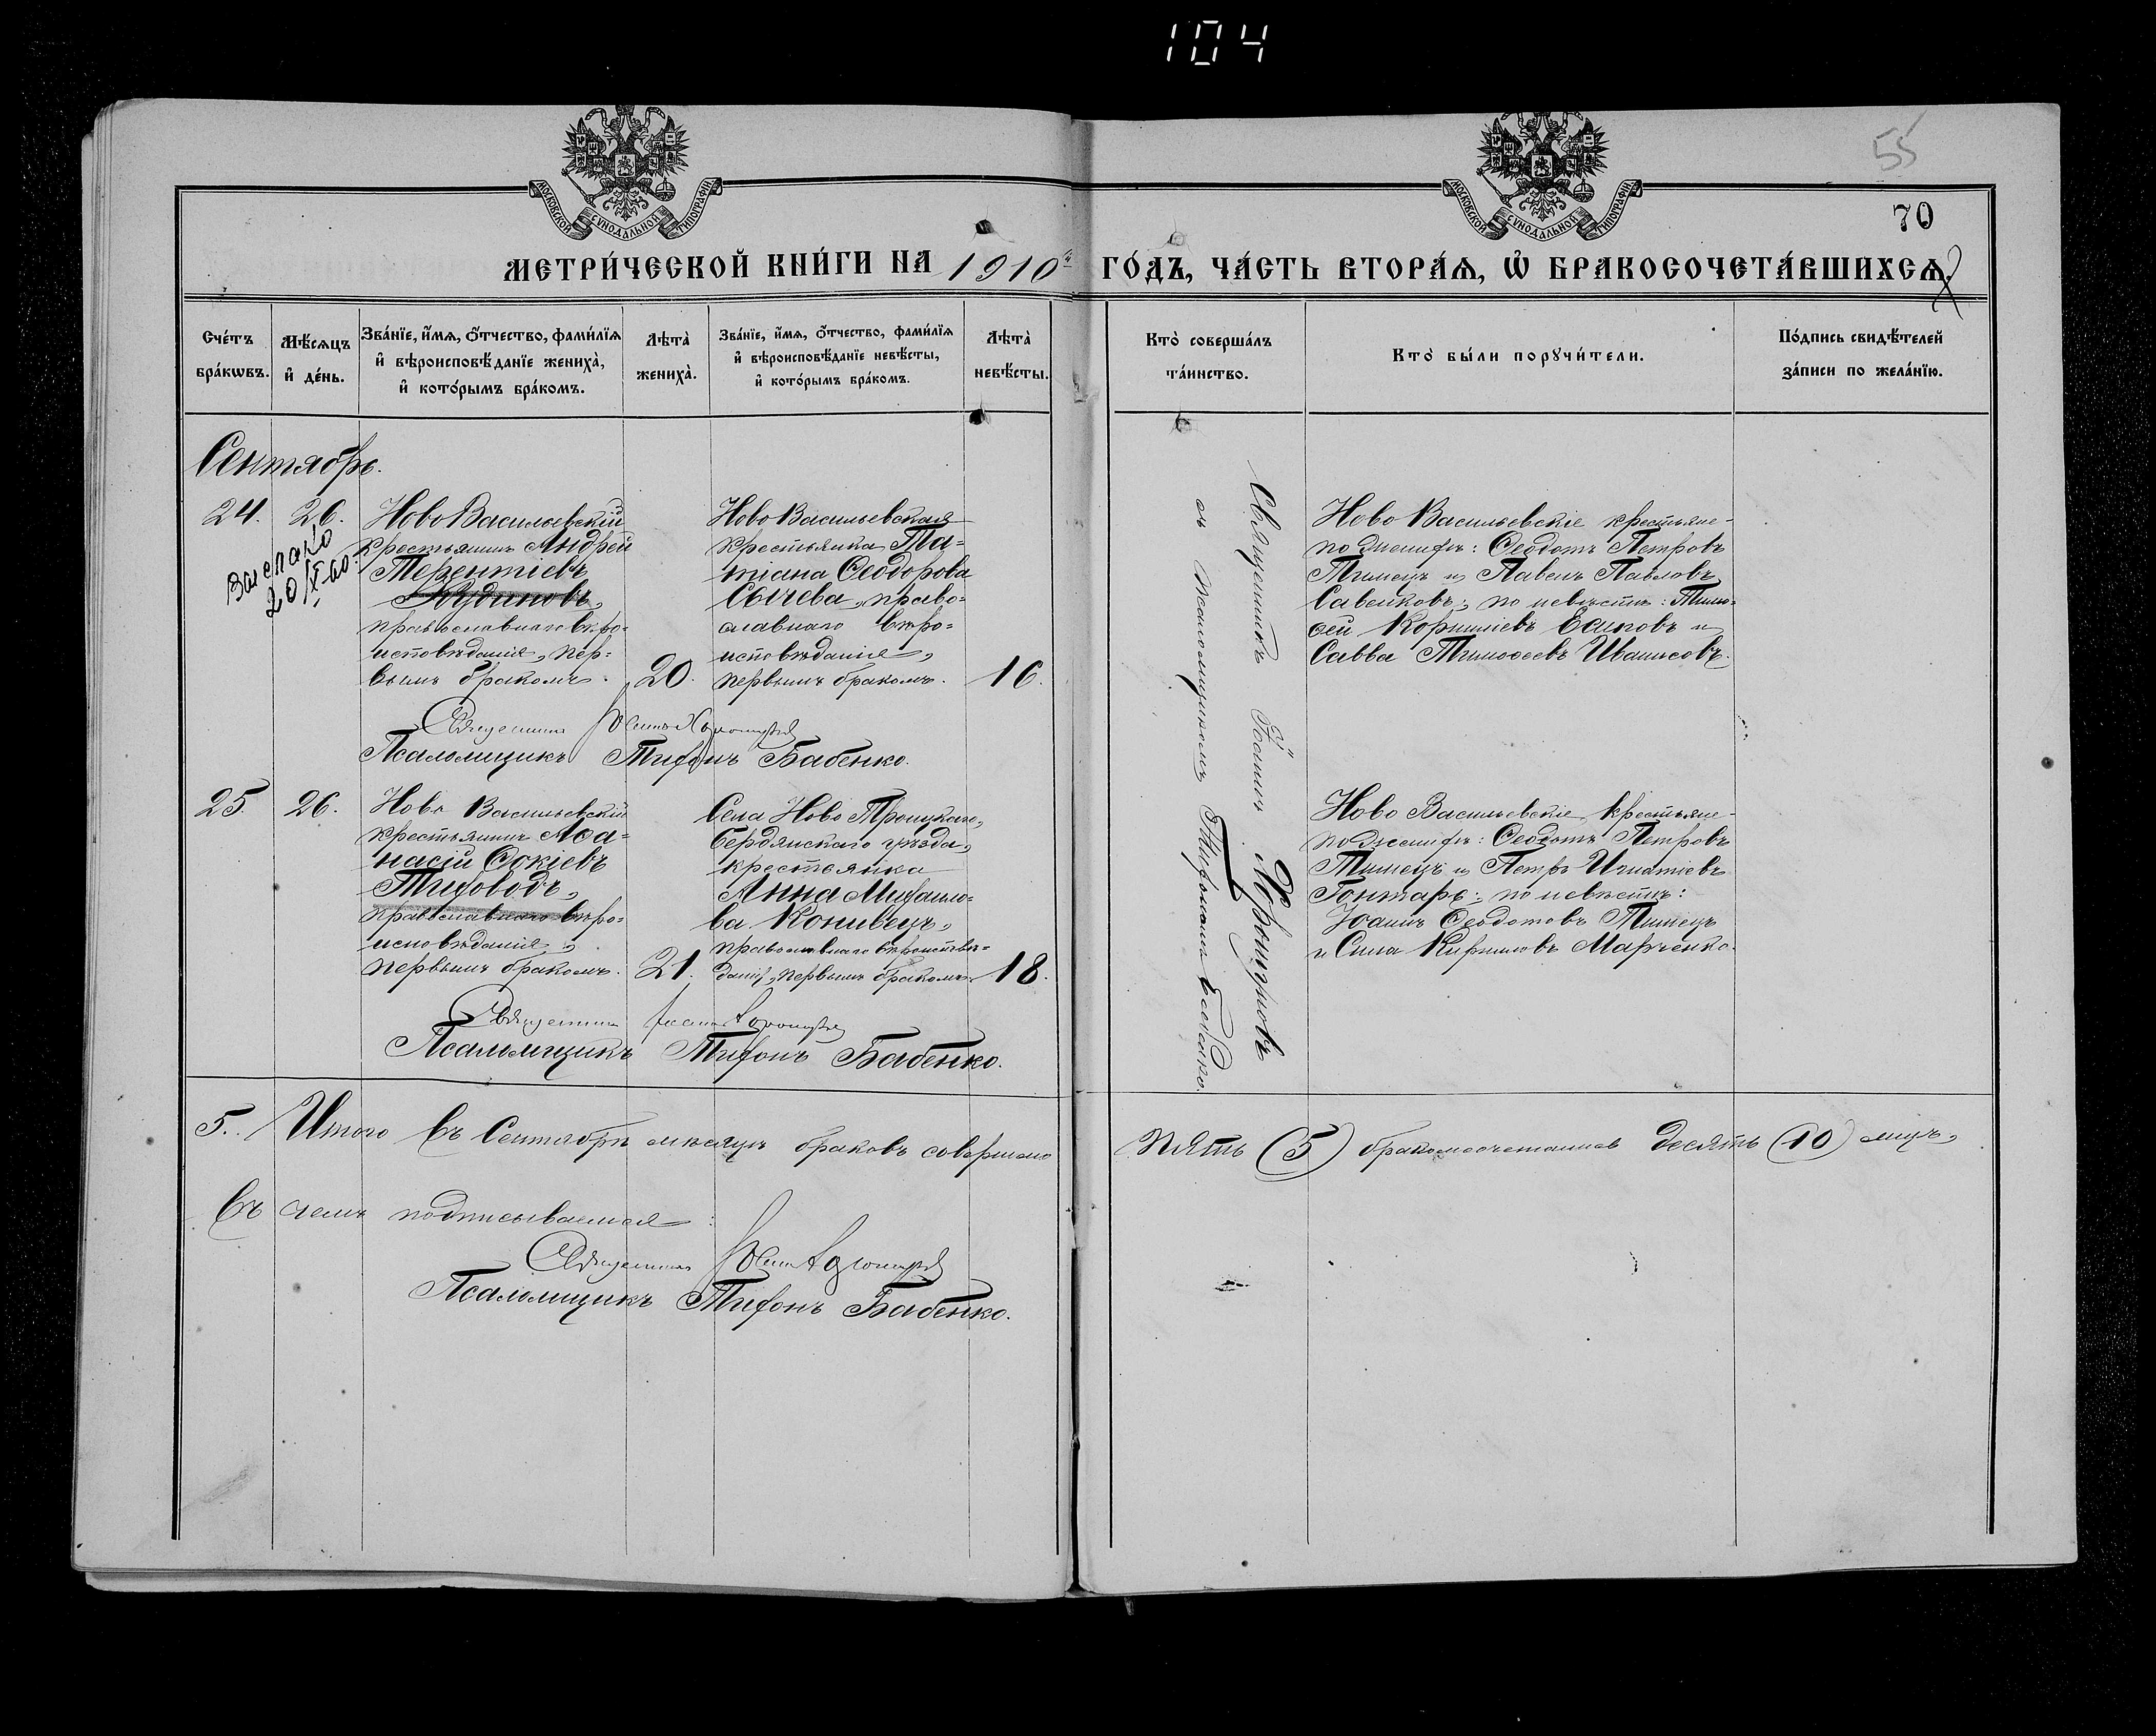 104
55
70
МОСКОВСКОЙ СѴНОДАЛЬНОЙ ТИПОГРАФІИ
МОСКОВСКОЙ СѴНОДАЛЬНОЙ ТИПОГРАФІИ
МЕТРИ́ЧЕСКОЙ КНИ́ГИ НА 1910й ГО́ДЪ, ЧА́СТЬ ВТОРА́Ѧ, Ѽ БРАКОСОЧЕТА́ВШИХСѦ.
Сче́тъ бра́кѡвъ.
Мѣ́сѧцъ и҆ де́нь.
Зва́нїе, и҆́мѧ, ѻ҆́тчество, фами́лїѧ
и҆ вѣроисповѣ́данїе жениха̀,
и҆ кото́рымъ бра́комъ.
Лѣта̀ жениха̀.
Зва́нїе, и҆́мѧ, ѻ҆́тчество, фами́лїѧ
и҆ вѣроисповѣ́данїе невѣ́сты,
и҆ кото́рымъ бра́комъ.
Лѣта̀ невѣ́сты.
Кто̀ соверша́лъ та́инство.
Кто̀ бы́ли порꙋчи́тели.
По́дпись свидѣ́телей за́писи по жела́нїю.
Сентябрь.
24.
26.
Выслано
20/X-60
Ново Васильевскій
крестьянинъ Андрей
Терентіевъ
Кудиновъ,
православнаго вѣро=
исповѣданія, пер=
вымъ бракомъ.
20.
Ново Васильевская
крестьянка Та=
тіана Ѳеодорова
Сычева, право=
славнаго вѣро=
исповѣданія,
первымъ бракомъ.
16.
Священникъ Іоаннъ Хрощуновъ
съ псаломщикомъ Тихономъ Бабенко.
Ново Васильевскіе крестьяне
по женихѣ: Ѳеодотъ Петровъ
Тимецъ и Павелъ Павловъ
Савенковъ; по невѣстѣ: Тимо=
ѳей Корниліевъ Есиповъ и
Савва Тимоѳеевъ Иванисовъ.
Священникъ Іоаннъ
Псаломщикъ Тихонъ Бабенко.
25.
26.
Ново Васильевскій
крестьянинъ Аѳа=
насій Ѳокіевъ
Тиховодъ,
православнаго вѣро=
исповѣданія,
первымъ бракомъ.
21.
Села Ново Троицкаго,
Бердянскаго уѣзда,
крестьянка
Анна Михаило=
ва Конивецъ,
православнаго вѣроисповѣ=
данія, первымъ бракомъ.
18.
Ново Васильевскіе крестьяне
по женихѣ: Ѳеодотъ Петровъ
Тимецъ и Петръ Игнатіевъ
Гонтарь; по невѣстѣ:
Іоаннъ Ѳеодотовъ Тимецъ
и Сила Кирилловъ Марченко.
Священникъ Іоаннъ
Псаломщикъ Тихонъ Бабенко.
5. Итого въ Сентябрѣ мѣсяцѣ браковъ совершено пять (5) бракосочетанныхъ десять (10) лицъ,
въ чемъ подписываемся:
Священникъ Іоаннъ
Псаломщикъ Тихонъ Бабенко.